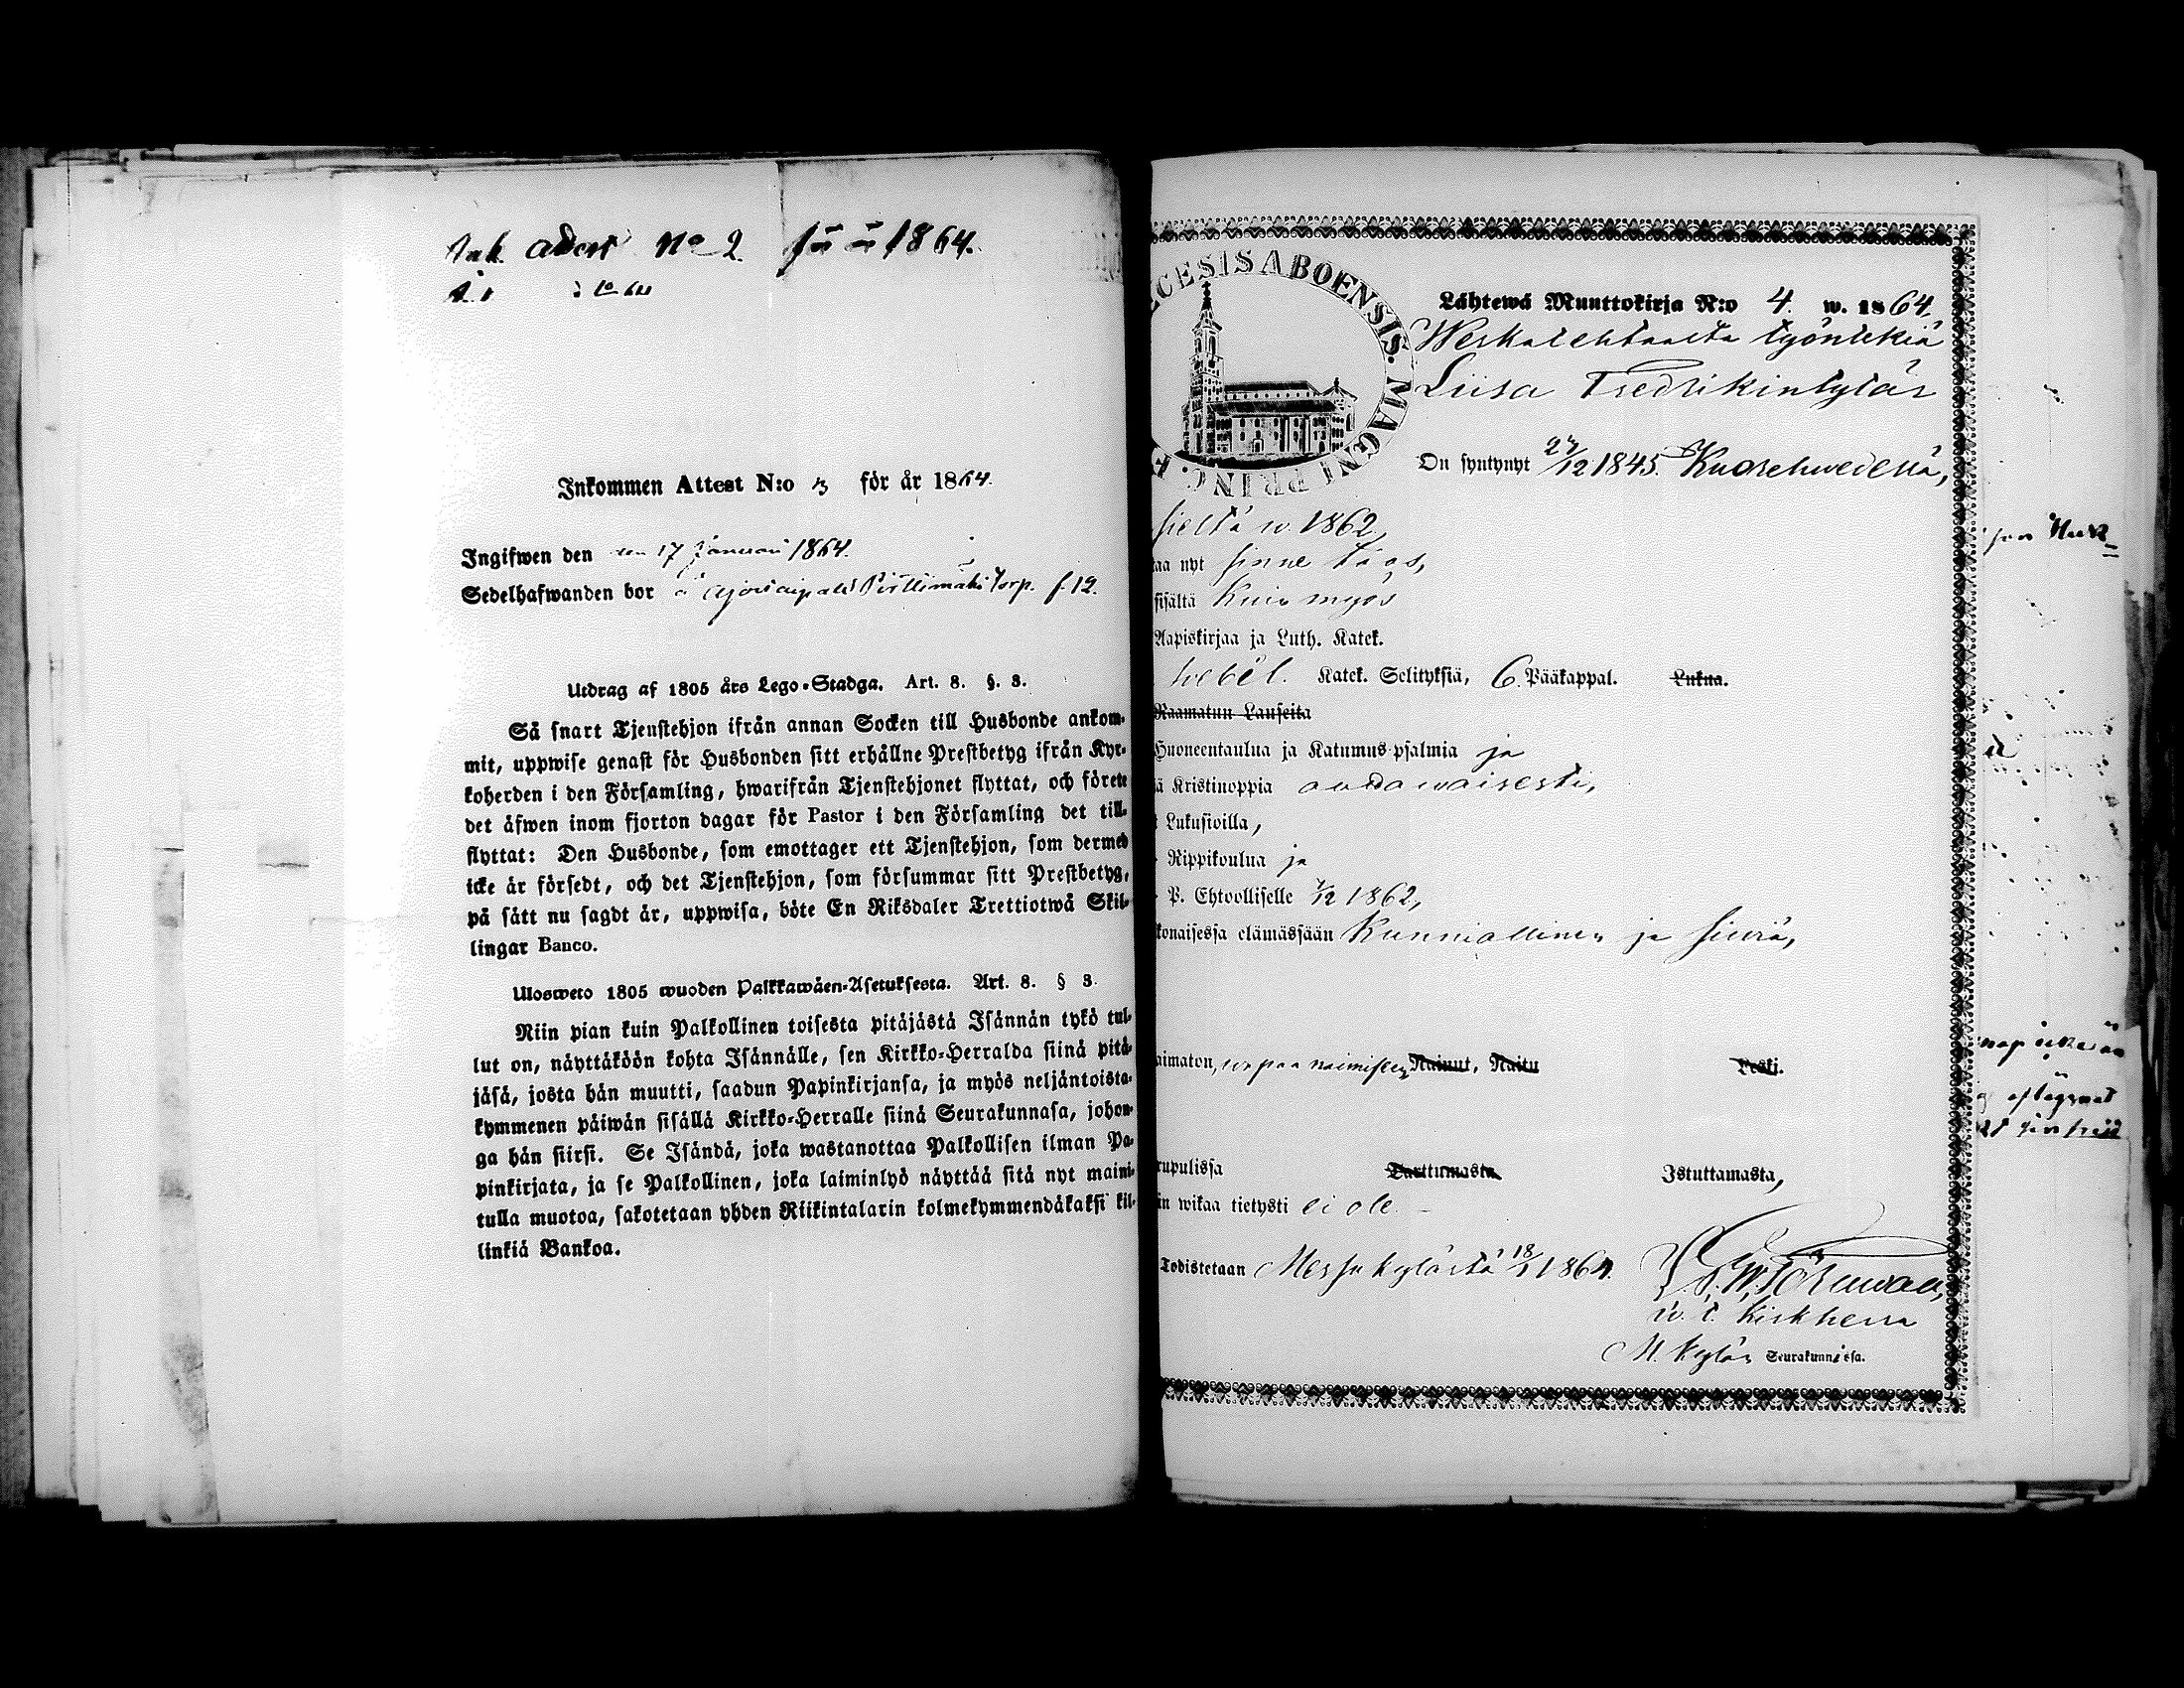 Ink. attest No 2. för år 1864.
Inkommen Attest N:o 3 för år 1864.
Ingifwen den den 17 Januari 1864.
Sedelhafwanden bor å Torp. f. 12.
Utdrag af 1805 års Lego-Stadga. Art. 8. §. 3.
Så snart Tjenstehjon ifrån annan Socken till Husbonde ankom-
mit, uppwise genast för Husbonden sitt erhållne Prestbetyg ifrån Kyr-
koherden i den Församling, hwarifrån Tjenstehjonet flyttat, och förete
det äfwen inom fjorton dagar för Pastor i den Församling det till-
flyttat: Den Husbonde, som emottager ett Tjenstehjon, som dermed
icke är försedt, och det Tjenstehjon, som försummar sitt Prestbetyg,
på sätt nu sagdt är, uppwisa, böte En Riksdaler Trettiotwå Skil-
lingar Banco.
Ulosweto 1805 wuoden Palkkawäen-Asetuksesta. Art. 8. § 3.
Niin pian kuin Palkollinen toisesta pitäjästä Isännän tykö tul-
lut on, näyttäköön kohta Isännälle, sen Kirkko-Herralda siinä pitä-
jäsä, josta hän muutti, saadun Papinkirjansa, ja myös neljäntoista-
kymmenen päiwän sisällä Kirkko-Herralle siinä Seurakunnasa, johon-
ga hän siirsi. Se Isändä, joka wastanottaa Palkollisen ilman Pa-
pinkirjata, ja se Palkollinen, joka laiminlyö näyttää sitä nyt maini-
tulla muotoa, sakotetaan yhden Riikintalarin kolmekymmendäkaksi kil-
linkiä Bankoa.
CESIS ABOENSIS. MAGNI PRINC.
Lähtewä Muuttokirja N:o 4. w. 1864.
Werkatehtaalta työntekiä
Liisa Fredrikintytär
On syntynyt 27/12 1845. Kuorehwedessä,
sieltä w. 1862,
taa nyt sinne taas,
sisältä Kuin myös
Aapiskirjaa ja Luth. Katek.
Katek. Selityksiä, 6. Pääkappal. Lukua.
Raamatun Lauseita
Huoneentaulua ja Katumus-psalmia ja
ä Kristinoppia auttawaisesti,
t Lukusioilla,
Rippikoulua ja
P. Ehtoolliselle 7/12 1862,
konaisessa elämässään Kunniallinen ja siwiä,
aimaton, wapaa naimiseen, Nainut, Naitu Leski.
rupulissa Tarttumasta Istuttamasta,
in wikaa tietysti ei ole.
Todistetaan Messukylästä 18/1 1864.
w. t. Kirkherra
M. kylän Seurakunnassa.